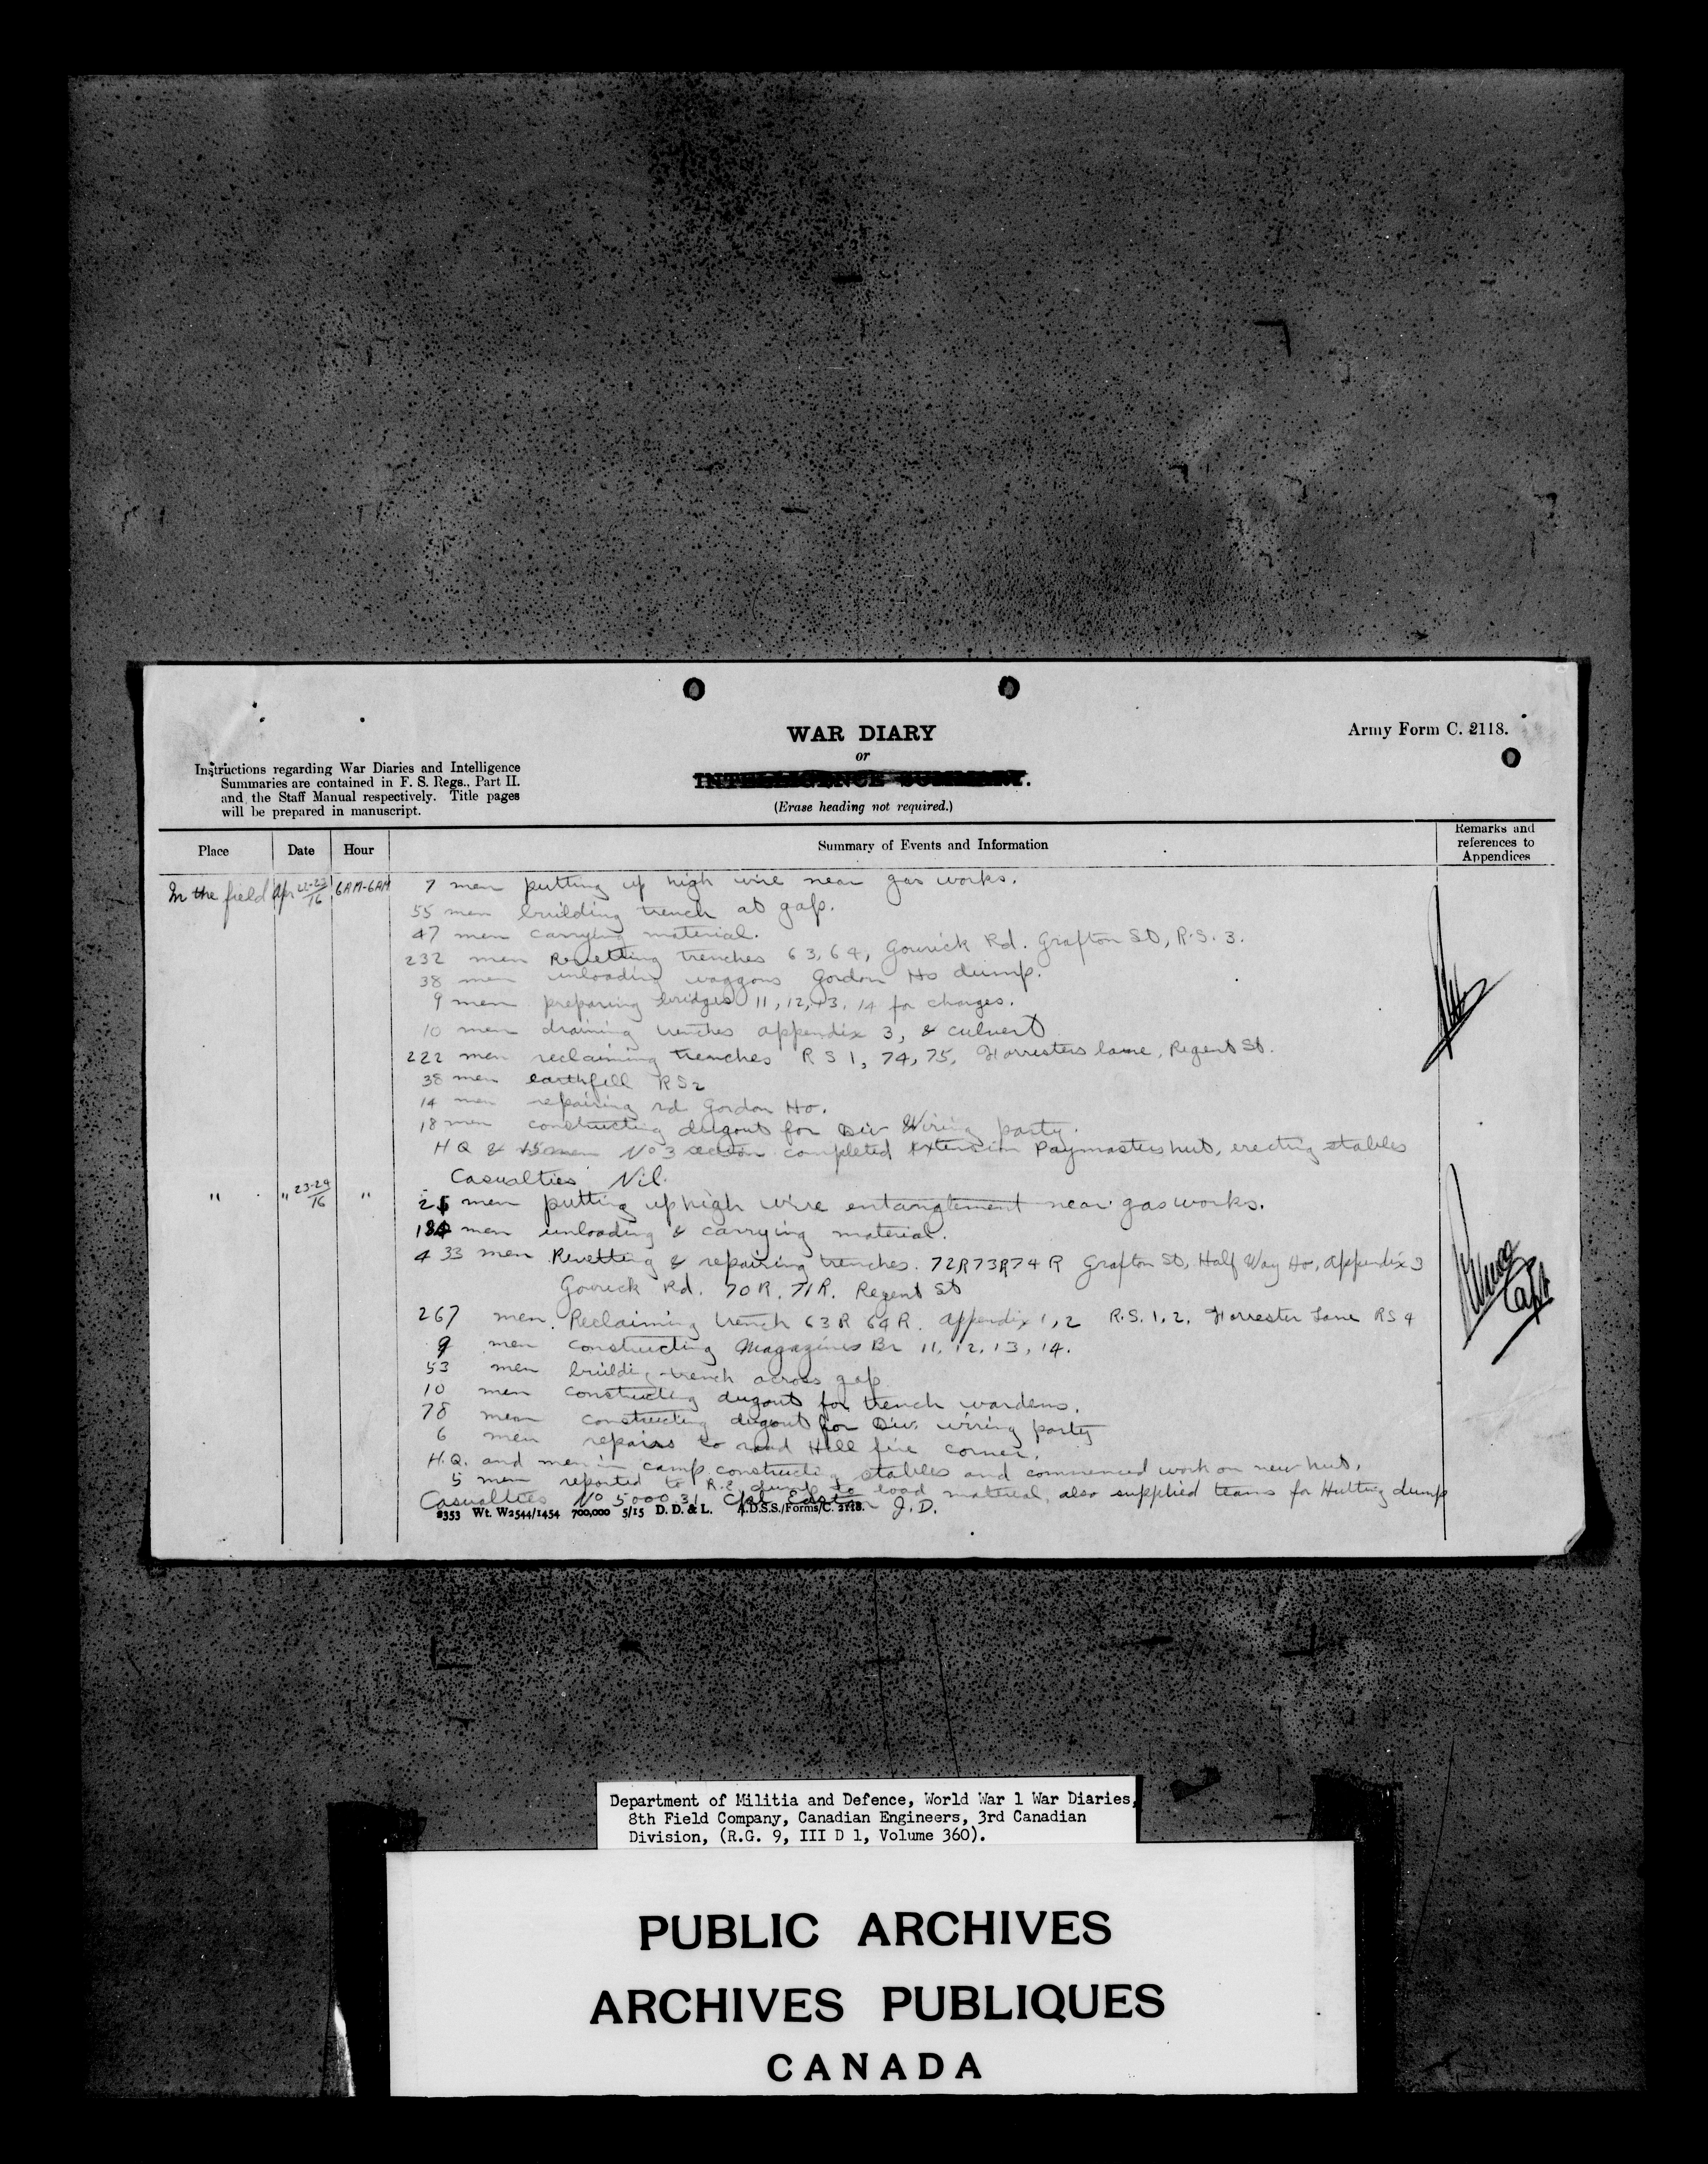 WAR DIARY
or
INTELLIGENCE SUMMARY.
(Erase heading not required.)
Army Form C. 2118.
Instructions regarding War Diaries and Intelligence
Summaries are contained in F. S. Regs., Part II.
and the Staff Manual respectively. Title pages
will be prepared in manuscript.
Place Date Hour Summary of Events and Information Remarks and references to Appendices
In the field Apr 22-23/16 6AM-6AM 7 men putting up high wire near gas works.
55 men building trench at gap.
47 men carrying material.
232 men Revetting trenches 63, 64, Gowrick Rd. Grafton St, R.S. 3.
38 men unloading waggons Gordon Ho dump.
9 men preparing bridges 11, 12, 13, 14 for charges.
10 men draining trenches appendix 3, & culvert
222 men reclaiming trenches R S 1, 74, 75, Forresters lane, Regent St.
38 men earthfill RS2
14 men repairing rd Gordon Ho.
18 men constructing dugout for Div Wiring party.
H Q & 15 men No 3 section completed extension Paymasters hut, erecting stables
Casualties Nil.
" " 23-24/16 " 25 men putting up high wire entanglement near gas works.
184 men unloading & carrying material.
433 men Revetting & repairing trenches. 72R 73R 74R Grafton St, Half Way Ho, Appendix 3
Gowrick Rd. 70R. 71R. Regent St
267 men Reclaiming trench 63R 64R. appendix 1, 2 R.S. 1, 2, Forrester Lane RS 4
9 men constructing Magazines Br 11, 12, 13, 14.
53 men building trench across gap
10 men constructing dugout for trench wardens.
78 men constructing dugout for Div. wiring party
6 men repairs to road Hell fire corner.
H.Q. and men in camp constructing stables and commenced work on new hut.
5 men reported to R.E. dump to load material, also supplied teams for Hutting dump
Casualties No 500031 Cpl J.D.
Capt
8353 Wt. W2544/1454 700,000 5/15 D. D. & L. A.D.S.S./Forms/C. 2118.
Department of Militia and Defence, World War 1 War Diaries,
8th Field Company, Canadian Engineers, 3rd Canadian
Division, (R.G. 9, III D 1, Volume 360).
PUBLIC ARCHIVES
ARCHIVES PUBLIQUES
CANADA